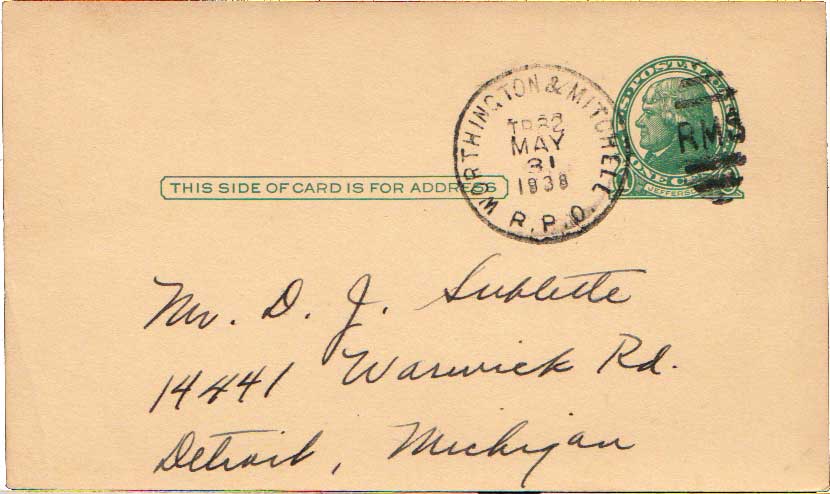 U.S. POSTAL CARD
JEFFERSON
ONE CENT
WORTHINGTON & MITCHELL
TR82
MAY
31
1938
R.P.O.
RMS
THIS SIDE OF CARD IS FOR ADDRESS
Mr. D. J. Sublette
14441 Warwick Rd.
Detroit, Michigan